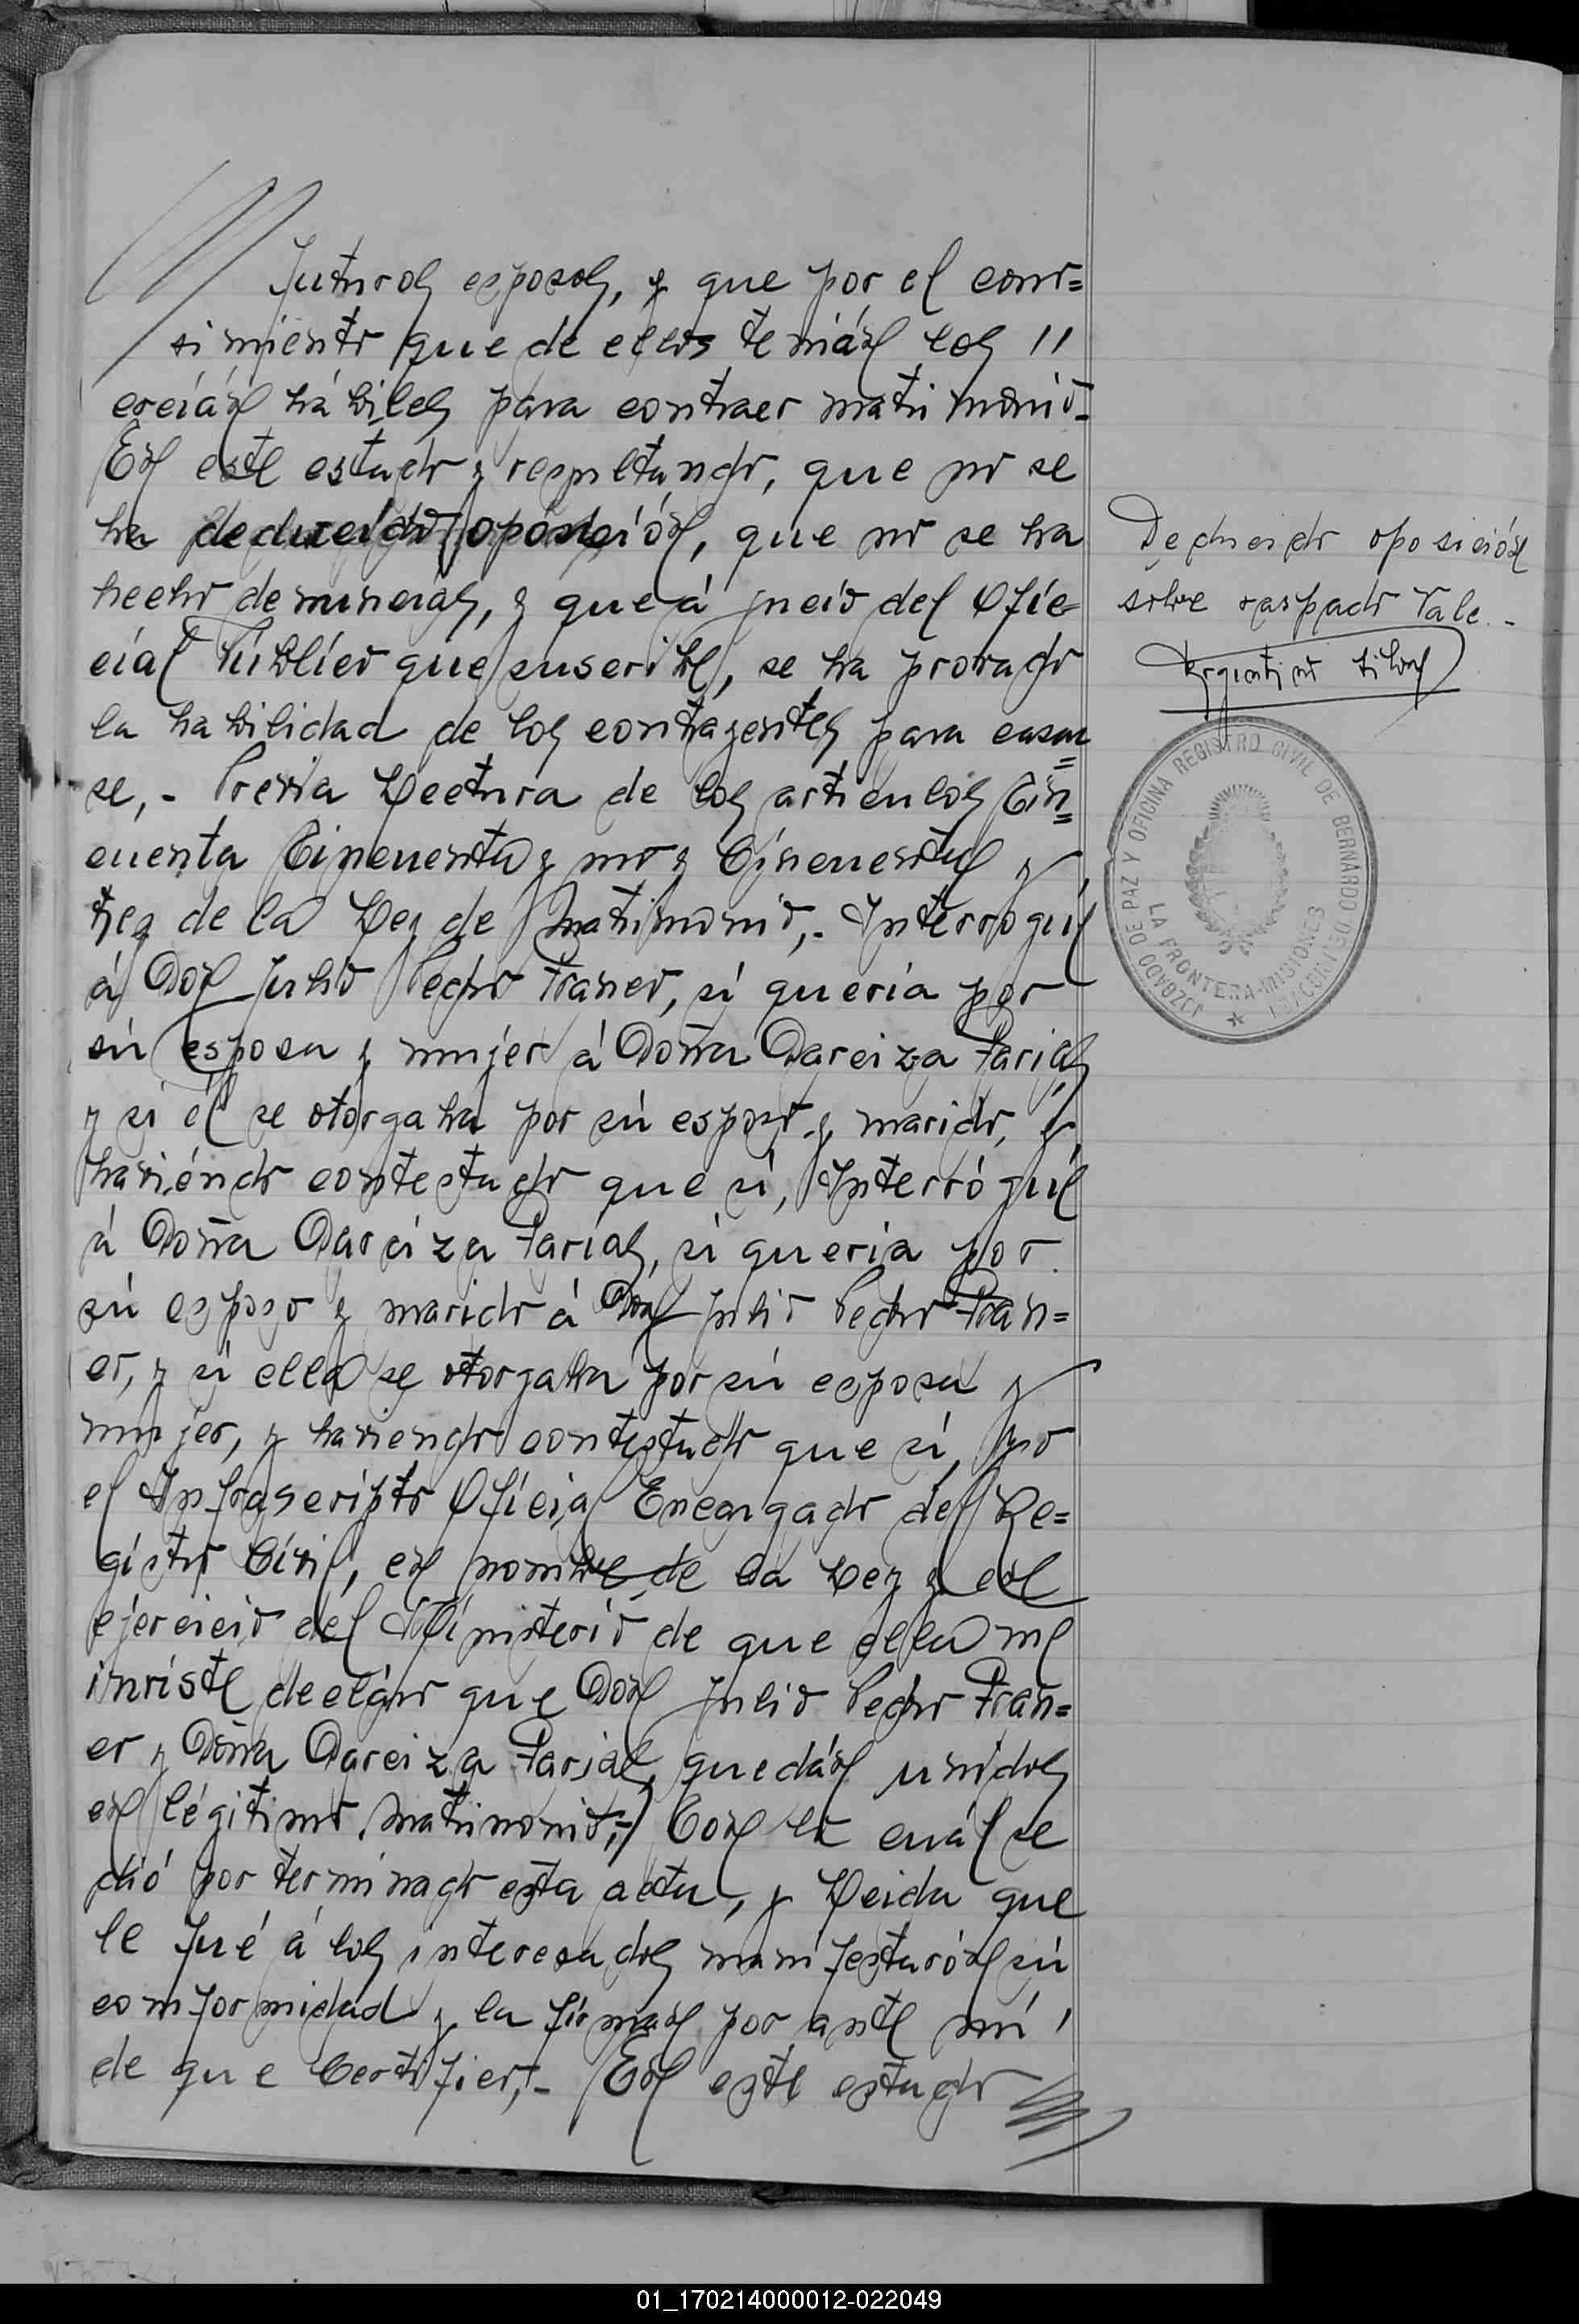 Futuros esposos, y que por el cono=
simiento que de ellos tenián los "
creián hábiles para contraer matrimonio-
En este estado y resultando, que no se
ha deducido oposición, que no se ha
hecho denuncias, y que á jucio del Ofic=
cial Público que suscribe, se ha provado
la habilidad de los contrayentes para casar=
se,- Previa Lectura de los articulos Cin=
cuenta Cincuenta y uno y Cincuenta y
tres de la Ley de Matrimonio,- Interrogué
á Don Julio Pedro Franco, si queria por
sú esposa y mujer á Doña Darciza Farias
y si él se otorgaba por sú esposo y marido, y
haviéndo contestado que sí, Interrógué
á Doña Darciza Farias, si queria por
sú esposo y marido á Don Julio Pedro Fran=
co, y si ella se otorgaba por sú esposa y
mujer, y haviendo contestado que sí, yo
el Infrascripto Oficial Encargado del Re=
gistro Civil, en nombre de la Ley y en
ejercicio del Ministerio de que ella me
inviste declaro que Don Julio Pedro Fran=
co y Doña Darciza Farias, quedán unidos
en légitimo Matrimonio,- Con lo cuál se
dió por terminado esta acta, y Leida que
le fué á los interesados manifestarón sú
comformidad y la firman por ante mí
de que Certifico,- En este estado
Deducido oposición
sobre raspado Vale.-
JUZGADO DE PAZ Y OFICINA REGISTRO CIVIL DE BERNARDO DE IRIGOYEN
LA FRONTERA-MISIONES
01_170214000012-022049